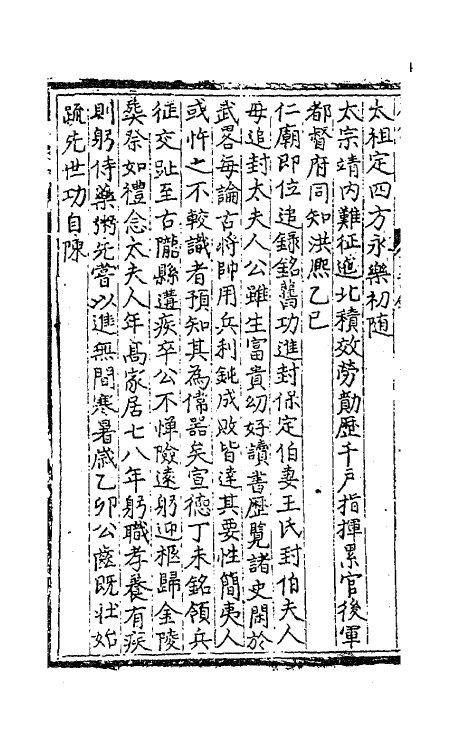 太祖定四方永樂初随
太宗靖內難征進北積效勞勣歷千戶指揮累官後軍
都督府同知洪熙乙巳
仁廟即位追錄銘舊功進封保定伯妻王氏封伯夫人
毋追封太夫人公雖生富貴幼好讀書歷覽諸史閑於
武畧每論古將帥用兵利鈍成敗皆達其要性簡夷人
或忤之不較識者預知其為偉器矣宣德丁未銘領兵
征交趾至古隴縣遘疾卒公不憚險遠躬迎柩歸金陵
塟祭如禮念太夫人年髙家居七八年躬職孝養有疾
則躬侍藥粥先嘗以進無間寒暑嵗乙卯公齒既壯始
䟽先世功自陳